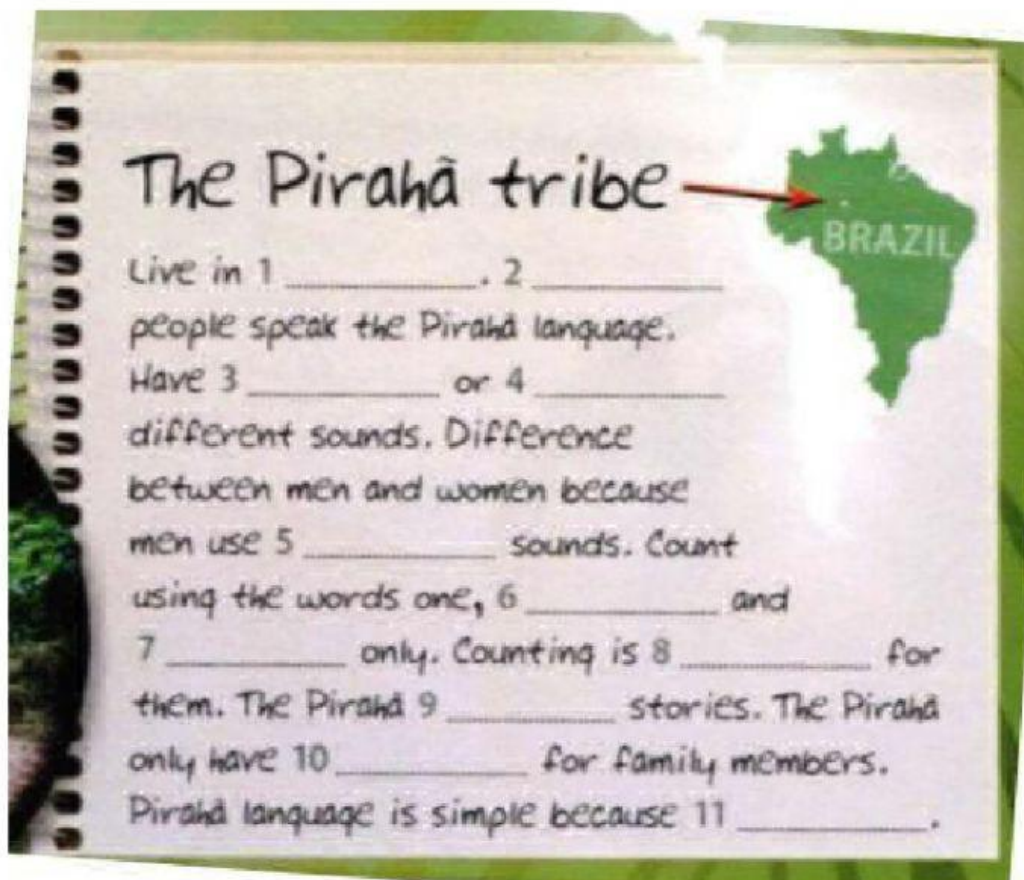 The Pirahã tribe
BRAZIL
Live in 1 ________. 2 ________
people speak the Pirahã language.
Have 3 ________ or 4 ________
different sounds. Difference
between men and women because
men use 5 ________ sounds. Count
using the words one, 6 ________ and
7 ________ only. Counting is 8 ________ for
them. The Pirahã 9 ________ stories. The Pirahã
only have 10 ________ for family members.
Pirahã language is simple because 11 ________.